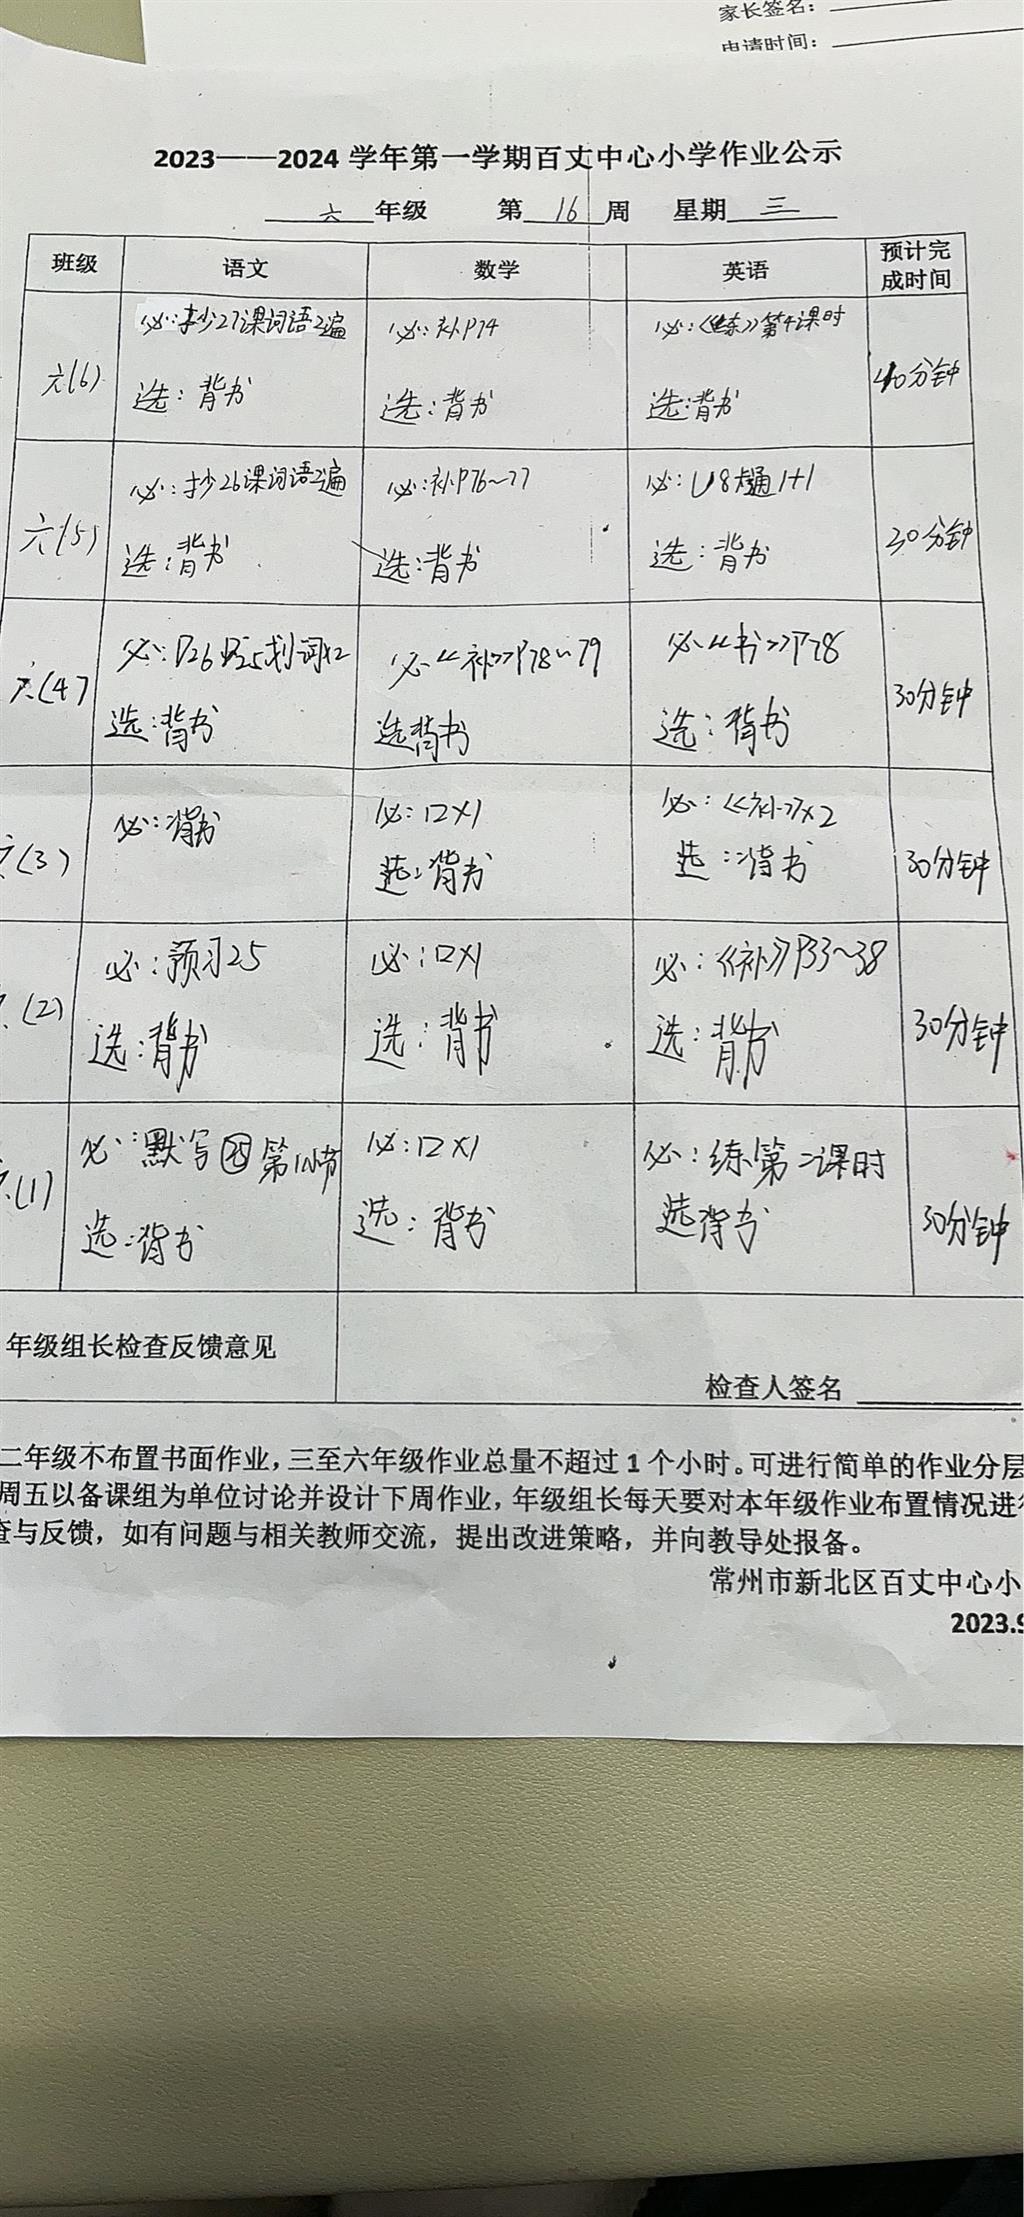 家长签名：
申请时间：
2023——2024 学年第一学期百丈中心小学作业公示
六 年级 第 16 周 星期 三
班级 语文 数学 英语 预计完
成时间
六(6) 必：抄27课词语2遍 必：补P74 必：《练》第4课时 40分钟
选：背书 选：背书 选：背书
六(5) 必：抄26课词语2遍 必：补P76~77 必：U8 通1+1 30分钟
选：背书 选：背书 选：背书
六(4) 必：P26 25划词x2 必《补》P78~79 必《书》P78 30分钟
选：背书 选背书 选：背书
六(3) 必：背书 必：12x1 必：《补》x2 30分钟
选：背书 选：背书
六(2) 必：预习25 必：12x1 必：《补》P33~38 30分钟
选：背书 选：背书 选：背书
六(1) 必：默写㉕第1小节 必：12x1 必：练第二课时 30分钟
选：背书 选：背书 选背书
年级组长检查反馈意见
检查人签名
二年级不布置书面作业，三至六年级作业总量不超过 1 个小时。可进行简单的作业分层
周五以备课组为单位讨论并设计下周作业，年级组长每天要对本年级作业布置情况进行
查与反馈，如有问题与相关教师交流，提出改进策略，并向教导处报备。
常州市新北区百丈中心小
2023.9